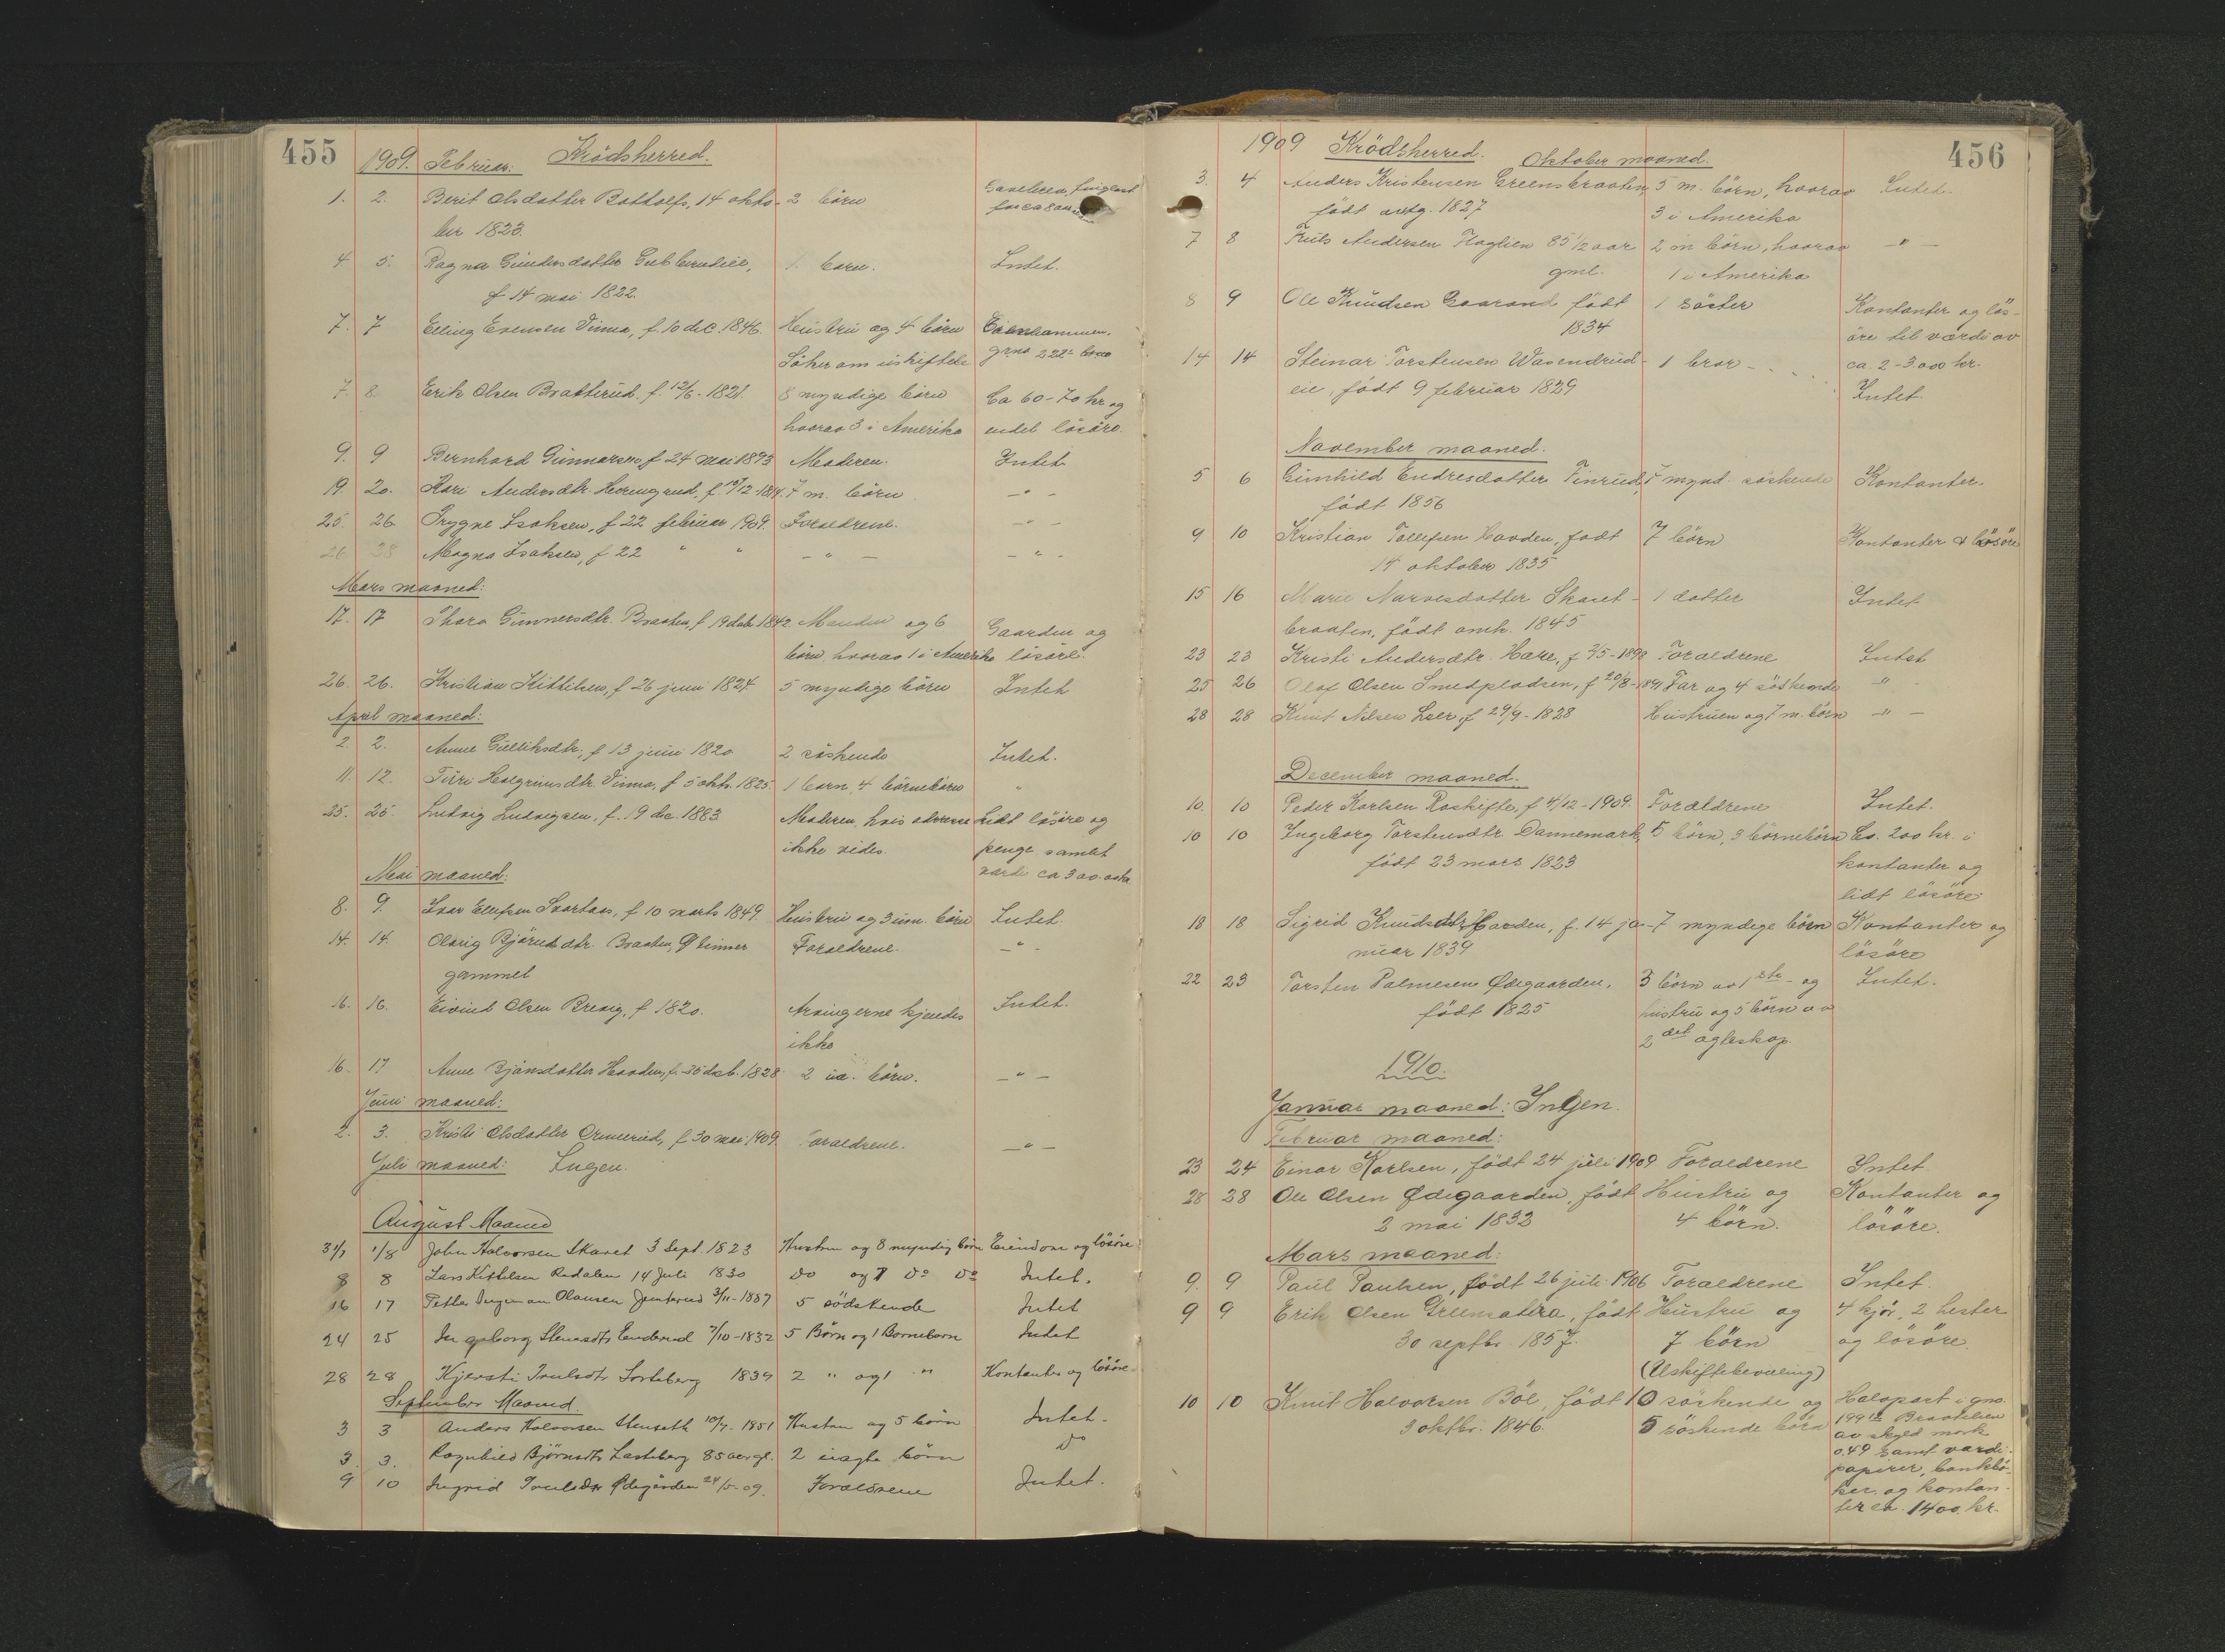 455
1909. Februar: Krödsherred.
1. 2. Berit Olsdatter Bottolfs, 14 okto- 2 börn
ber 1823.
4 5. Ragna Gundersdatter 1 barn. Intet.
f 14 mai 1822.
7. 7 Elling Evensen Vinna, f. 10 dec. 1846. Hustru og 4 börn
Söker om uskiftebev.
7. 8 Erik Olsen Bratterud, f. 12/6 - 1821. 8 myndige börn Ca 60-70 kr og
hvorav 3 i Amerika endel lösöre.
9. 9 Bernhard Gunnarsen f 24 mai 1893 Moderen. Intet
19. 20. Kari Andersdtr. Herrengrud, f. 7 m. börn. - " -
25. 26 Trygve Isaksen, f 22 februar 1909. Foreldrene. - " -
26. Magna Isaksen, f 22 " " - " - - " -
Mars maaned:
17. 17 Thora Gunnersdtr. Braaten, f 19 1842 Manden og 6 Gaarden og
börn hvorav 1 i Amerika lösöre.
26. 26. Kristian Kittilsen, f 26 juni 1824 5 myndige börn Intet
April maaned:
2. 2. Anne Gulliksdtr, f 13 juni 1820 2 söskende Intet.
11. 12. Turi Halgrimsdtr. Vinna, f 5 okt. 1825. 1 barn, 4 börnebörn "
25. 25. Ludvig Ludvigsen, f. 19 dec. 1883 Moderen, hvis adresse Lidt lösöre og
ikke vides. penge samlet
værdi ca 300
Mai maaned:
8. 9. Ivar Ellefsen Svartaas, f 10 marts 1849. Hustru og 3 um. börn Intet.
14. 14. Olaug Björnsdtr. Braaten, 9 timer Foraeldrene. - " -
gammel
16. 16. Eivind Olsen Brevig, f 1820. Arvingerne kjendes Intet.
ikke
16. 17 Anne Bjönsdatter Haaden, f. 1828 2 börn. - " -
Juni maaned:
2. 3. Kristi Olsdatter Ormerud, f 30 mai 1909. Foraeldrene. - " -
Juli maaned: Ingen.
August Maaned
31/7 1/8 John Halvorsen Skaret 3 Sept. 1823 Hustru og 8 myndig börn Eiendom og lösöre
8 8 Lars Kittelsen Redalen 14 Juli 1830 do og 7 do do Intet.
16 17 Petter Ingeman Olausen 3/11-1887 5 södskende Intet
24 25 Ingeborg Stensdtr Enderud 7/10-1832 5 Börn og 1 Barnebarn Intet
28 28 Kjersti Truelsdtr Lesteberg 1834 2 " og 1 " Kontanter og lösöre
September Maaned.
3 3 Anders Halvorsen Stenseth 10/7 - 1851 Hustru og 5 börn Intet.
3. 3. Ragnhild Björnsdtr Lesteberg 85 aar gl. 2 uagte börn do
9 10 Ingrid Truelsdtr Ødegården 24/5-09. Foraeldrene Intet.
456
1909 Krödsherred. Oktober maaned.
3. 4 Anders Kristensen Greensbraaten, 5 m. börn, hvorav Intet.
födt antg. 1827 3 i Amerika
7 8 Truls Andersen Haglien 85 1/2 aar 2 m börn, hvorav - " -
gml. 1 i Amerika
8 9 Ole Knudsen Gaarand födt 1 söster Kontanter og lös-
1834 öre til værdi av
ca. 2-3.000 kr.
14 14 Steinar Torstensen Wasendrud- 1 bror
eie, födt 9 februar 1829 Intet.
November maaned.
5 6 Gunhild Endresdatter Finrud, 7 mynd. söskende Kontanter.
födt 1856
9 10 Kristian Tollefsen Haaden, födt 7 börn Kontanter & lösöre
14 oktober 1835
15 16 Marie Narvesdatter Skaret- 1 datter Intet
braaten, födt omk. 1845
23 23 Kristi Andersdtr. Hære, f 2/5-1898 Foraeldrene Intet
25 26 Olaf Olsen Smedpladsen, f 20/8-1891 Far og 4 söskende "
28 28 Knut Nilsen Loer, f 29/9-1828 Hustruen og 7 m. börn - " -
December maaned.
10. 10 Peder Karlsen Roskifte, f 4/12-1909. Foraeldrene Intet.
10 10 Ingeborg Torstensdtr Dannemark, 5 börn, 3 börnebörn Ca. 200 kr. i
födt 23 mars 1823 kontanter og
lidt lösöre
18 18 Sigrid Knudsdtr Haaden, f. 14 ja- 7 myndige börn Kontanter og
nuar 1839 lösöre
22 23 Torsten Palmesen Ødegaarden, 3 börn av 1ste og Intet.
födt 1825 hustru og 5 börn av
2det egteskap.
1910.
Januar maaned: Ingen.
Februar maaned:
23 24 Einar Karlsen, födt 24 juli 1909 Foraeldrene Intet.
28 28 Ole Olsen Ødegaarden, födt Hustru og Kontanter og
2 mai 1832 4 börn. lösöre.
Mars maaned:
9. 9 Paul Paulsen, födt 26 juli 1906 Foraeldrene Intet.
9 9 Erik Olsen Greensætra, födt Hustru og 4 kjör, 2 hester
30 septbr. 1857. 7 börn og lösöre.
(Uskiftebevilling)
10 10 Knut Halvorsen Böl, födt 10 söskende og Halvpart i gno.
3 oktbr. 1846. 5 söskende börn 199 Braatelien
av skyld mark
0.49 samt værdi-
papirer, bankbö-
ker, og kontan-
ter ca. 1400 kr.